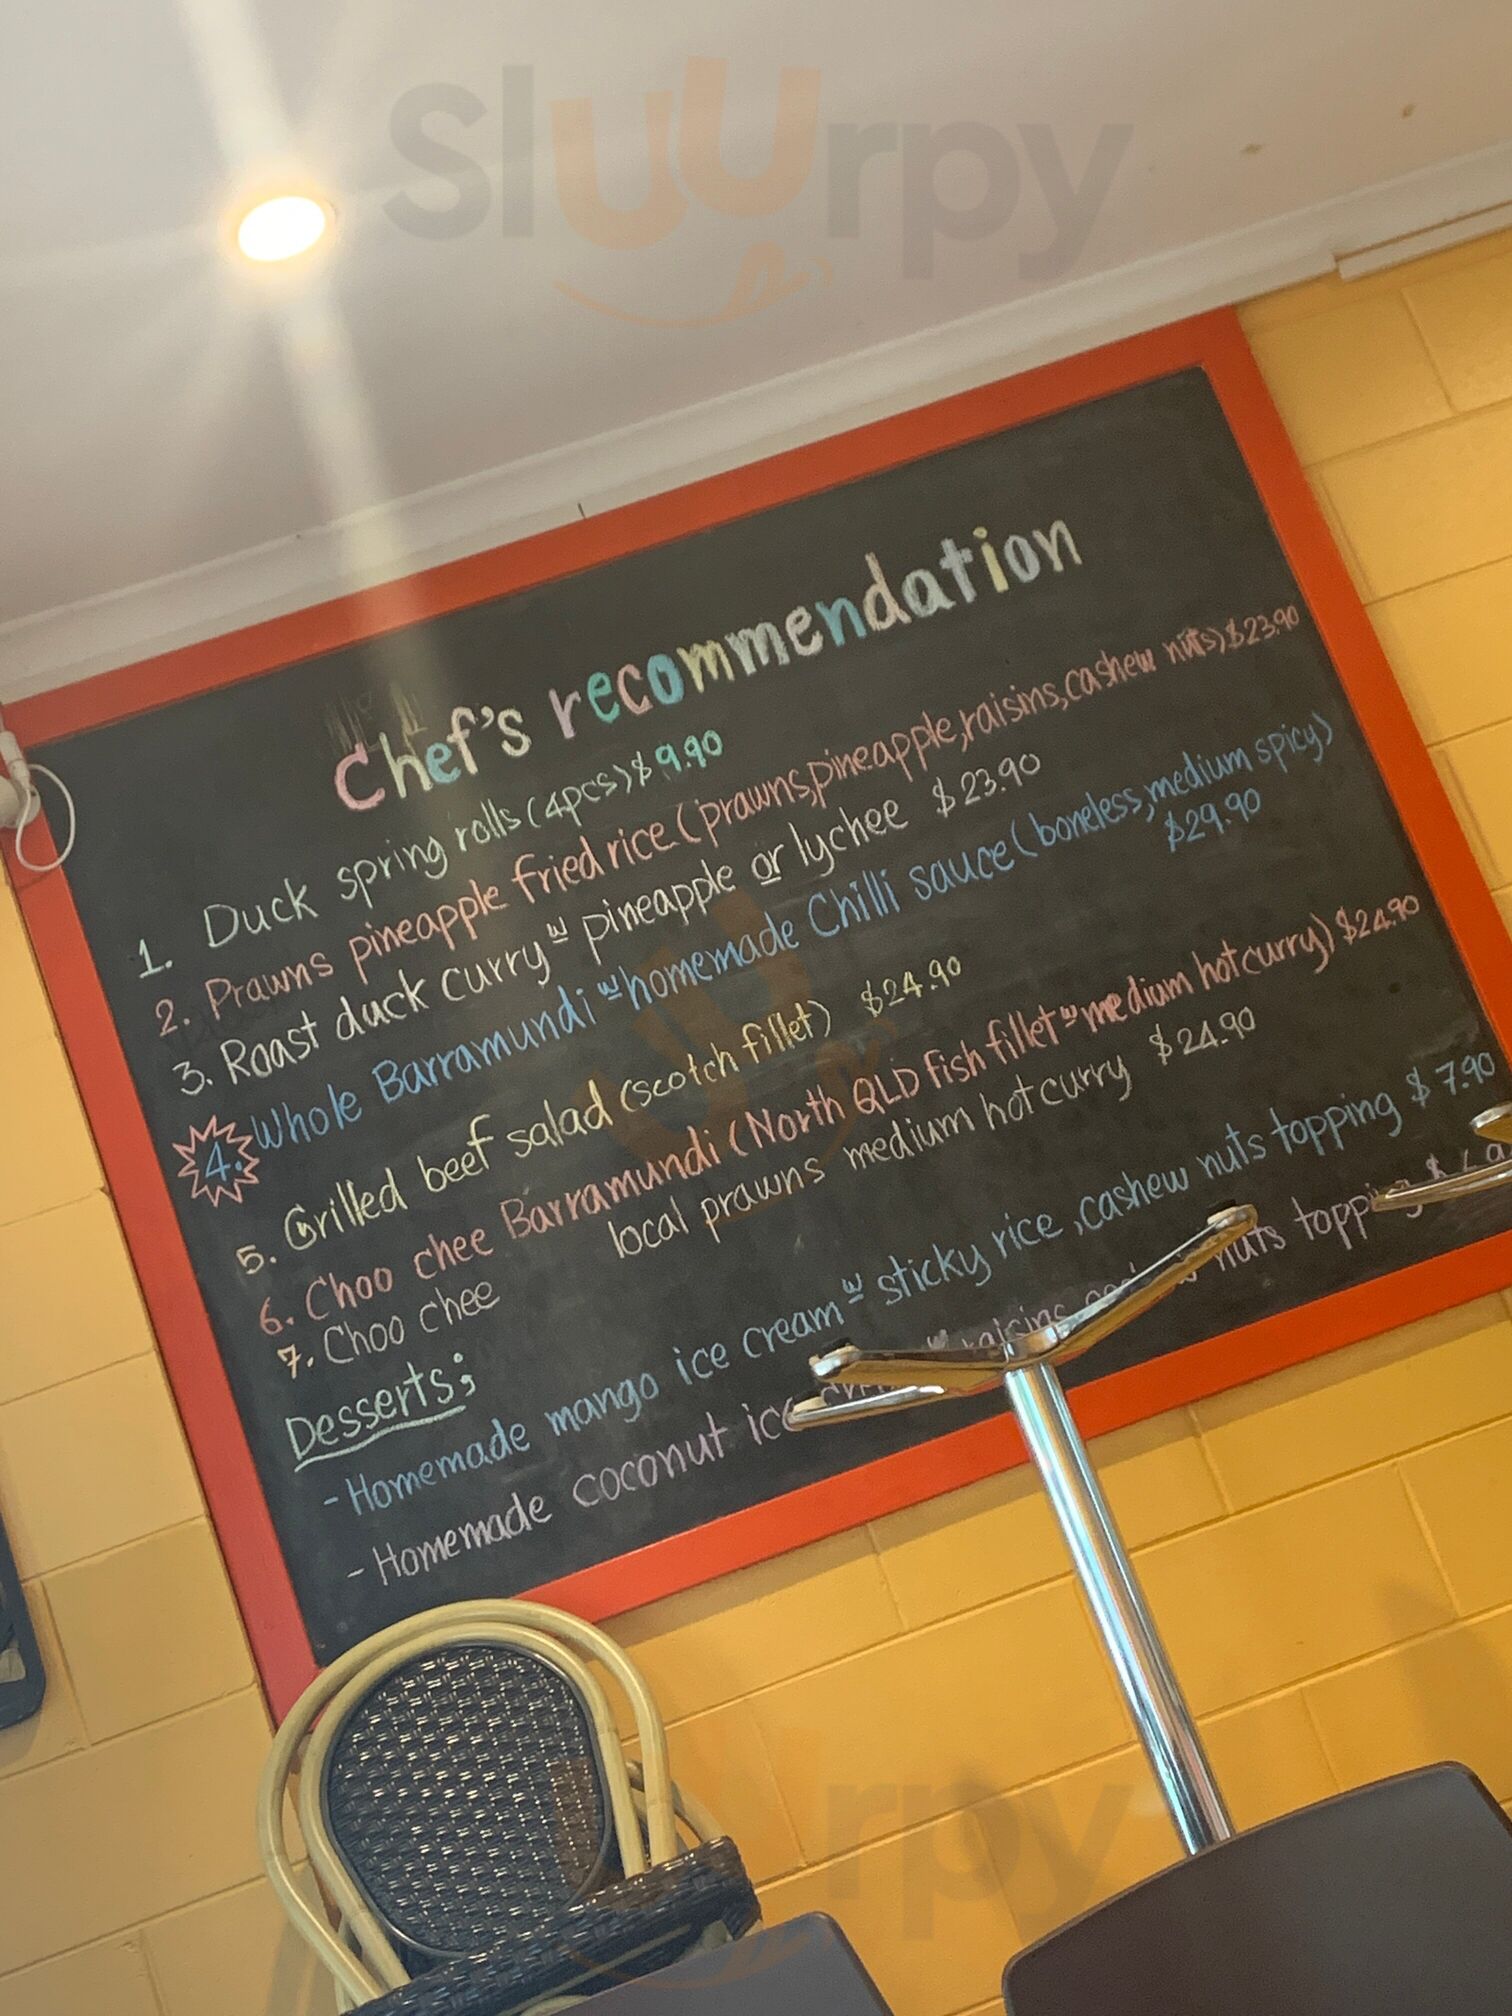 Sluurpy
Chef's recommendation
1. Duck spring rolls (4pcs) $9.90
2. Prawns pineapple fried rice (prawns, pineapple, raisins, cashew nuts) $23.90
3. Roast duck curry w pineapple or lychee $23.90
4. Whole Barramundi w homemade Chilli sauce (boneless, medium spicy)
$29.90
5. Grilled beef salad (scotch fillet) $24.90
6. Choo chee Barramundi (North QLD fish fillet w medium hot curry) $24.90
7. Choo chee local prawns medium hot curry $24.90
Desserts;
- Homemade mango ice cream w sticky rice, cashew nuts topping $7.90
- Homemade coconut ice raisins nuts topping $